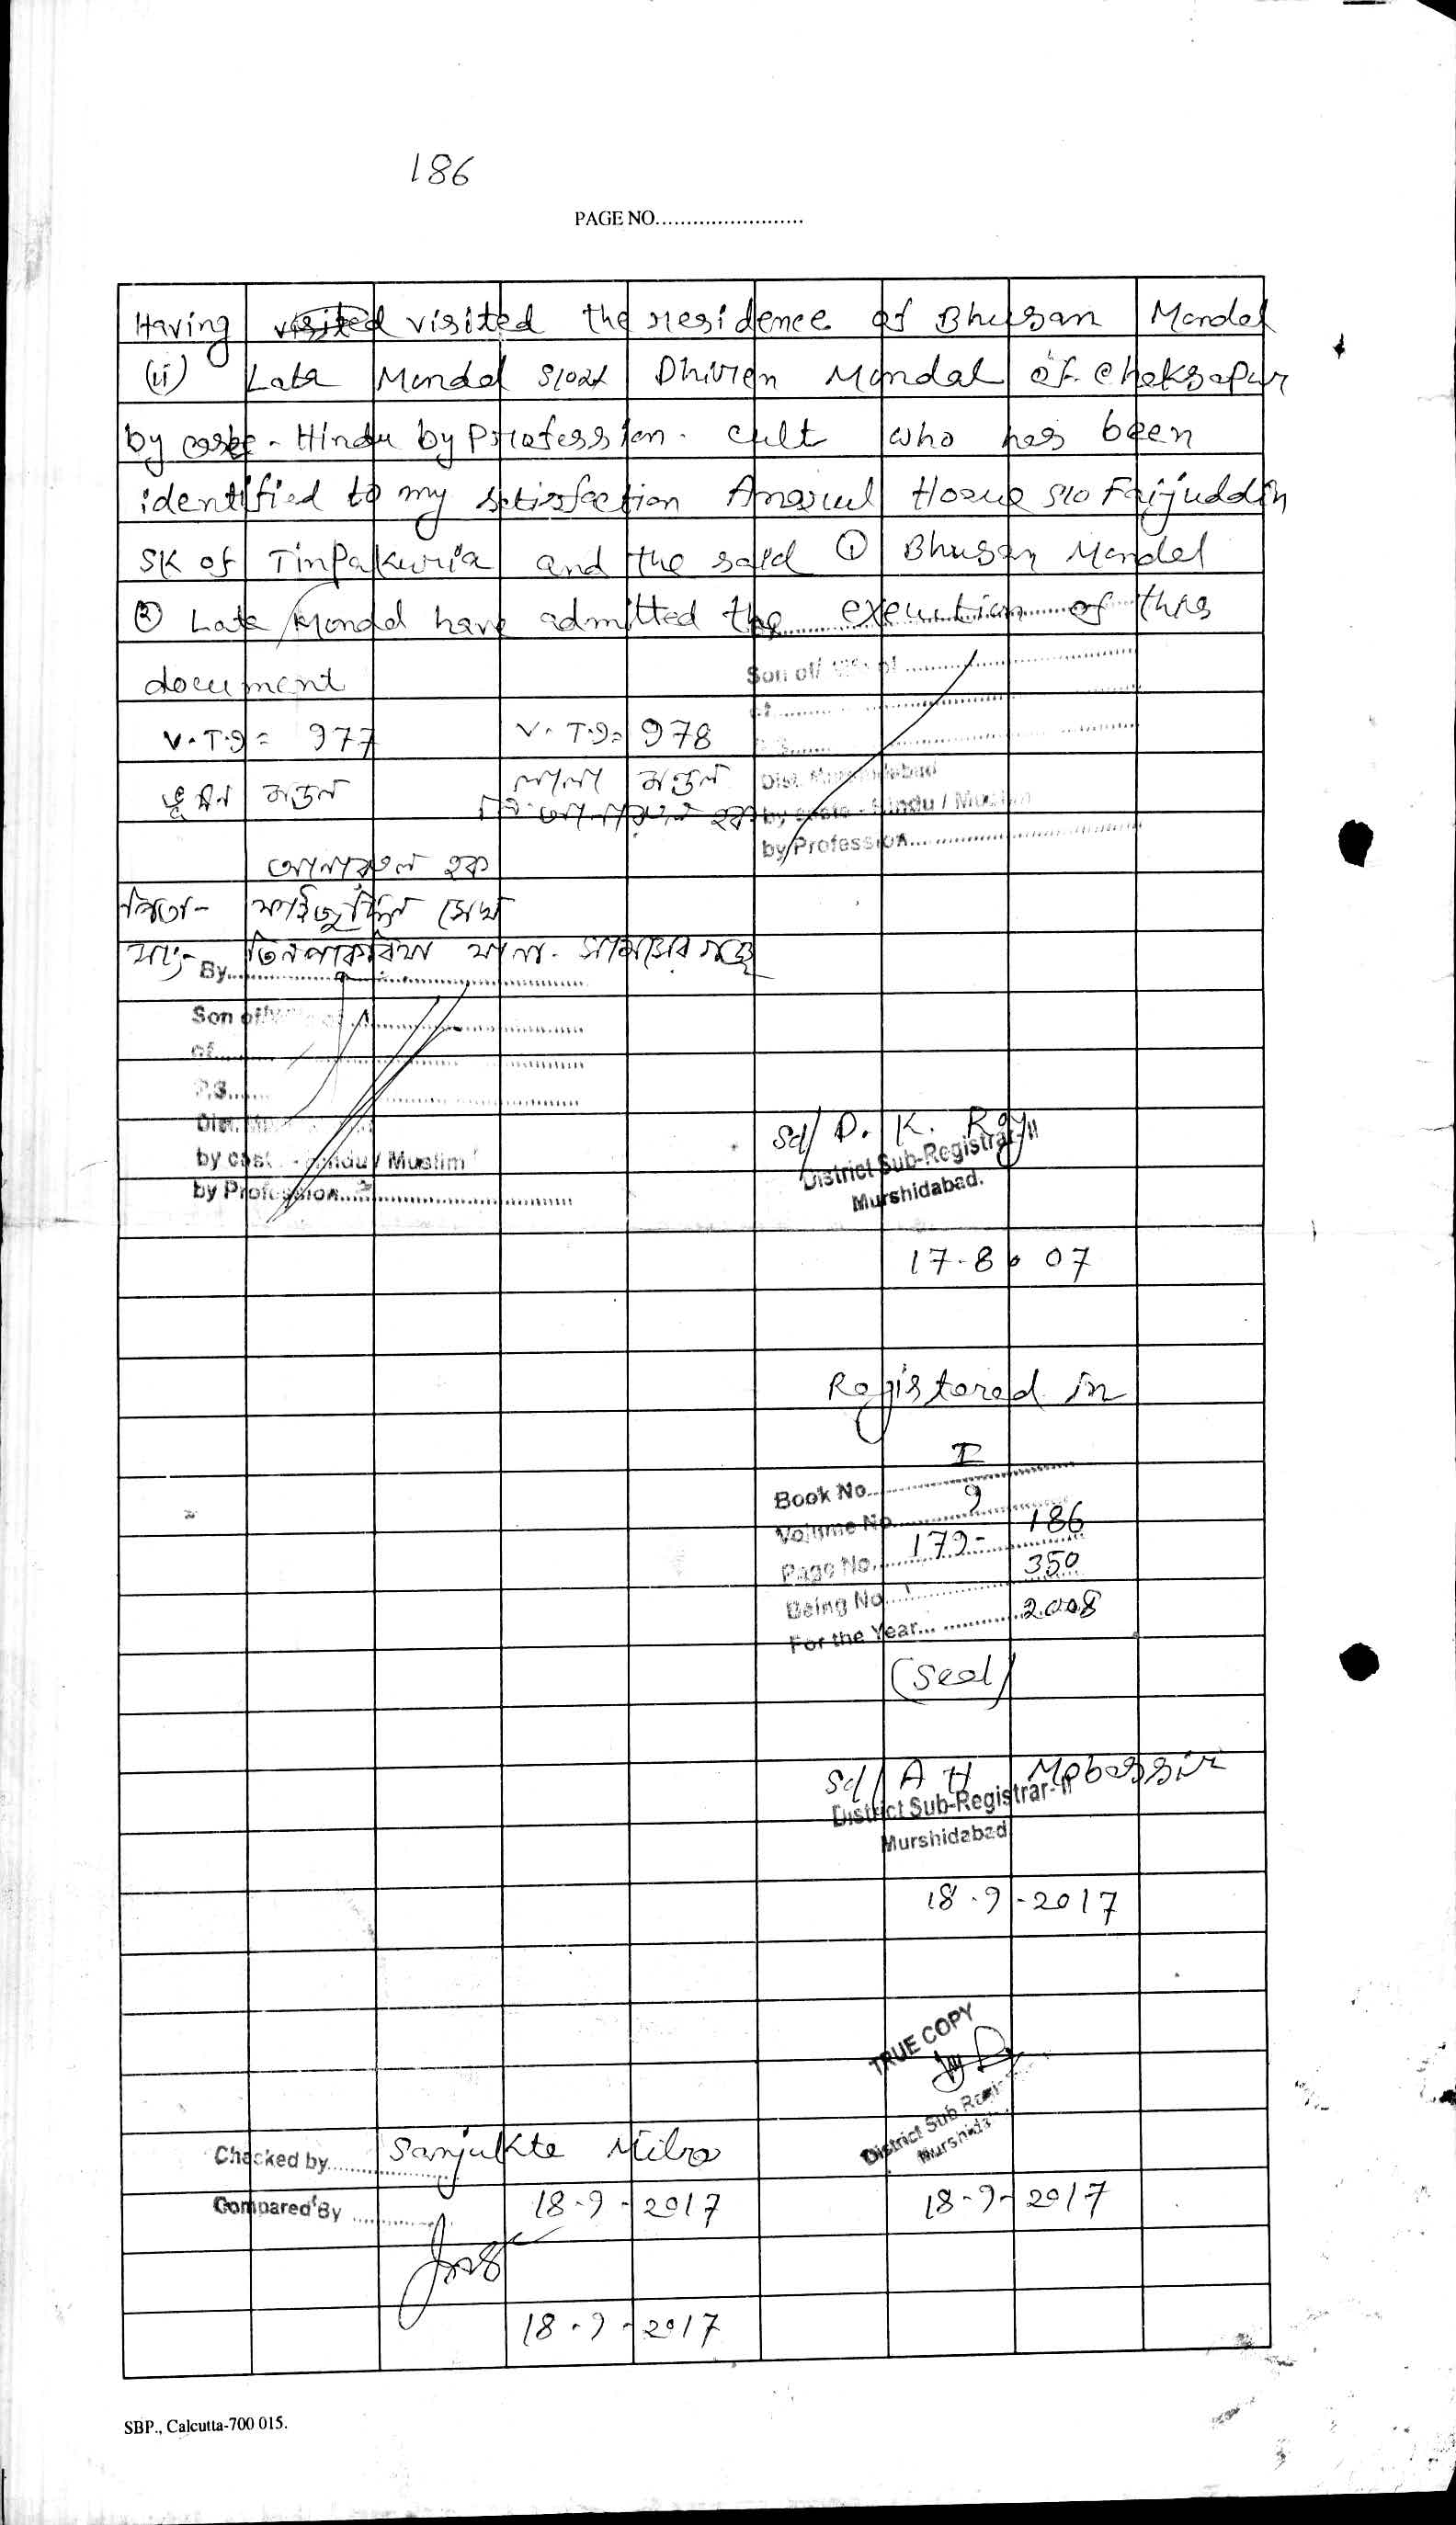 186
PAGE NO........................
Having visited visited the residence of Bhusan Mondal
(ii) Lata Mondal S/o at Dhiren Mondal of Choksapur
by caste - Hindu by Profession - cult who has been
identified to my satisfaction Anarul Hoque S/o Faijuddin
SK of Tinpakuria and the said ① Bhusan Mondal
② Lata Mondal have admitted the execution of this
document
Son of/
of
V.T.9 = 977 V.T.9 = 978
P.S......
ভূষন মন্ডল লালা মন্ডল
Dist. Murshidabad
by caste - Hindu / Muslim
by Profession
আনারুল হক
পিতা- ফাইজুদ্দিন সেখ
সাং- তিনপাকুরিয়া থানা- সামসেরগঞ্জ
By
Son of/
of
P.S.......
Dist.
by cast - Hindu / Muslim
by Profession
Sd/ D. K. Roy
District Sub-Registrar-II
Murshidabad.
17-8-07
Registered in
Book No. I
Volume No. 9
Page No. 179- 186
Being No. 350
For the Year... 2008
(Seal)
Sd/ A H Mobassir
District Sub-Registrar-II
Murshidabad
18-9-2017
TRUE COPY
District Sub Regi
Murshida
Checked by Sanjukta Mitra
Compared By 18-9-2017 18-9-2017
18-9-2017
SBP., Calcutta-700 015.